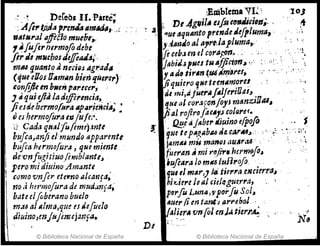 Defeba II. Parte,
Afer toda prenda amada,
natural affecto mueve,
y à suser hermoso debe
ser de muchos desseada,
mas quanto à necios agrada
(que ellos llaman bien querer)
consiste en buen parecer,
y aqui està la diferencia,
si es de hermosura apariencia,
ò es hermosura en su ser.
Cada qual su semejante
busca, ansi el mundo apparente
busca hermosura, que miente
de un fugitivo semblante,
pero mi divino Amante
como un ser eterno alcança,
no à hermosura de mudança,
bate el soberano buelo
mas al alma, que es de suelo
divino, en su semejança.
De
Emblema VI.
103
De Aguila es su condicion,
que aquanto prende desplumas,
y dando al ayre la pluma,
se ceba en el coraçon.
Jabid, pues tu affición,
y a do tiran tus amores,
si quiero que te enamores
de mi,
que al coraçon soy mançillas,
si al rostro faco colores.
Què à saber divino esposo
que te pagabas de caras,
jamas mis manos auaras
fueran à mi rostro hermoso,
buscara lo mas lustroso
que el mar, y la tierra encierra,
hiziere le al cielo guerra,
por su Luna, y por su Sol,
a ver si en tanto arrebol
saliera un sol en la tierra.
No
© Biblioteca Nacional de España
© Biblioteca Nacional de España